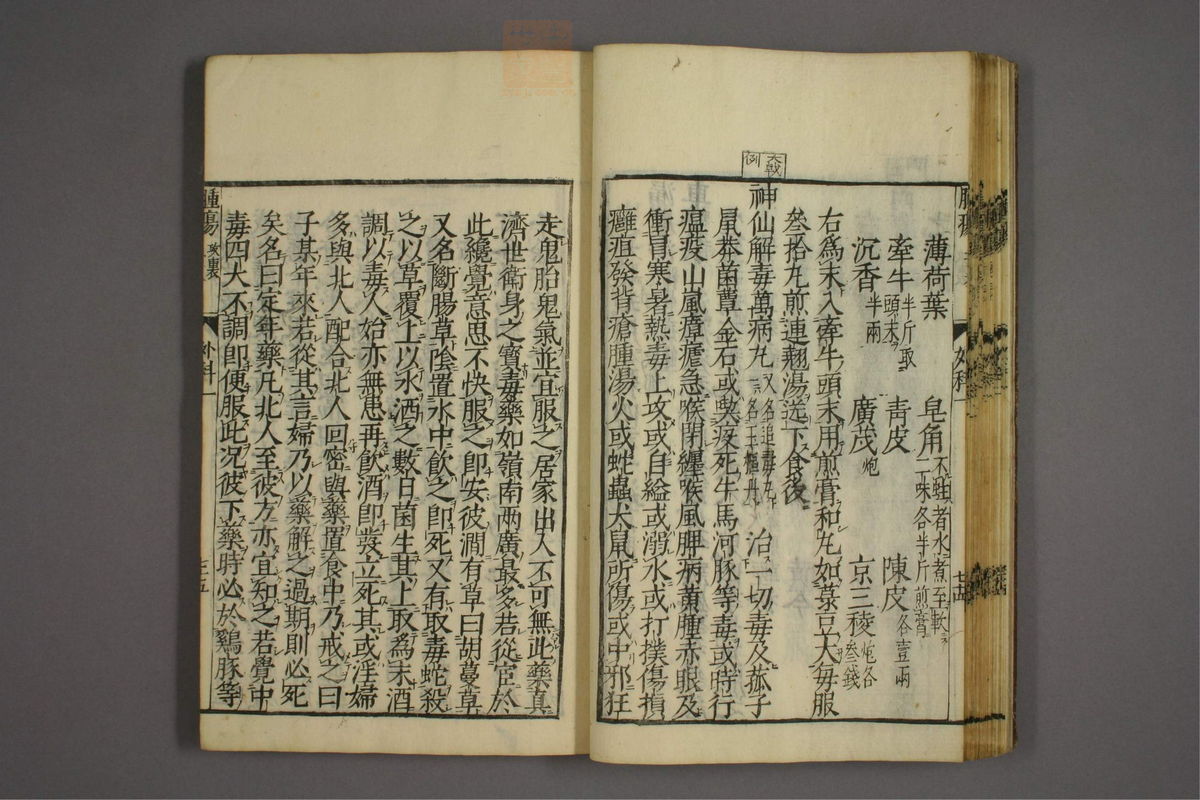 薄荷葉 皂角 不蛀者水煮至軟二味各半斤煎膏
牽牛 半斤取頭末 青皮 陳皮 各壹兩
沉香 半兩 廣茂 炮 京三稜 炮各叁錢
右為末入牽牛頭末用煎膏和丸如菉豆大每服
叁拾丸煎連翹湯送下食後
大戟例
神仙解毒萬病丸 又名追毒丸一名玉樞丹 治一切毒及菰子
鼠莽菌蕈金石或喫疫死牛馬河豚等毒或時行
瘟疫山嵐瘴瘧急喉閉纏喉風脾病黃腫赤眼及
衝冒寒暑熱毒上攻或自縊或溺水或打撲傷損
癰疽發背瘡腫湯火或蛇蟲犬鼠所傷或中邪狂
走鬼胎鬼氣並宜服之居家出入不可無此藥真
濟世衛身之寶毒藥如嶺南兩廣最多若從宦於
此纔覺意思不快服之即安彼澗有草曰胡蔓草
又名斷腸草陰置水中飲之即死又有取毒蛇殺
之以草覆上以水洒之數日菌生其上取為末酒
調以毒人始亦無患再飲酒即發立死其或淫婦
多與北人配合北人回密與藥置食中乃戒之曰
子某年來若從其言婦乃以藥解之過期則必死
矣名曰定年藥凡北人至彼方亦宜知之若覺中
毒四大不調即便服此況彼下藥時必於鷄豚等
腫瘍 攻裏 外科一